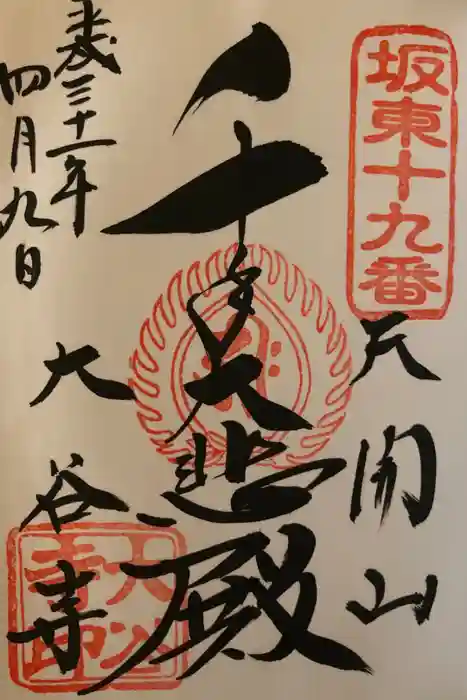 坂東十九番
天開山
千手大悲殿
平成三十一年
四月九日
大谷寺
大谷
寺印